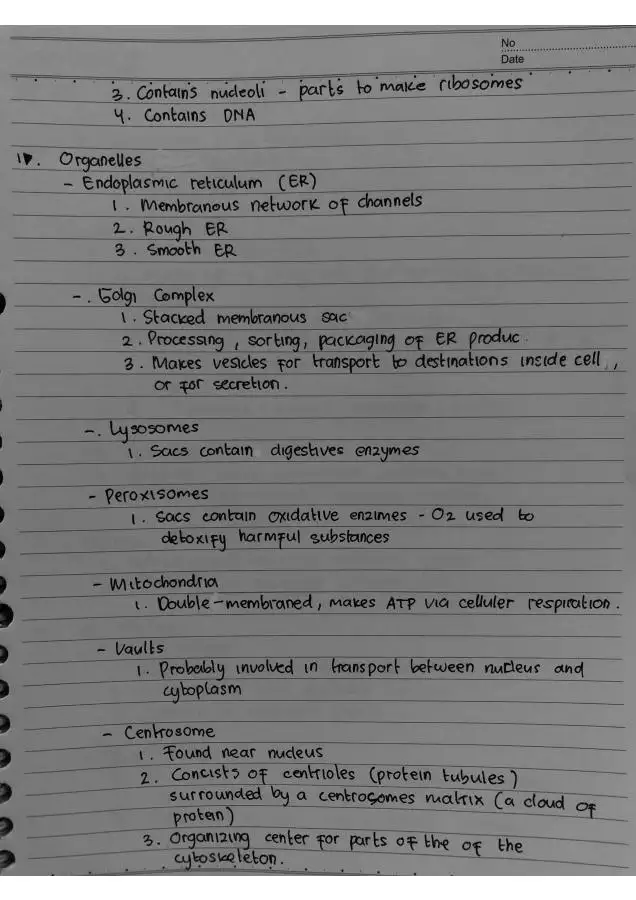 No
Date
3. Contains nucleoli - parts to make ribosomes
4. Contains DNA
IV. Organelles
- Endoplasmic reticulum (ER)
1. Membranous network of channels
2. Rough ER
3. Smooth ER
-. Golgi Complex
1. Stacked membranous sac
2. Processing, sorting, packaging of ER produc.
3. Makes vesicles for transport to destinations inside cell,
or for secretion.
-. Lysosomes
1. Sacs contain digestives enzymes
- Peroxisomes
1. Sacs contain oxidative enzimes - O2 used to
detoxify harmful substances
- Mitochondria
1. Double-membraned, makes ATP via celluler respiration.
- Vaults
1. Probably involved in transport between nucleus and
cytoplasm
- Centrosome
1. Found near nucleus
2. Concists of centrioles (protein tubules)
surrounded by a centrosomes matrix (a cloud of
protein)
3. Organizing center for parts of the of the
cytoskeleton.